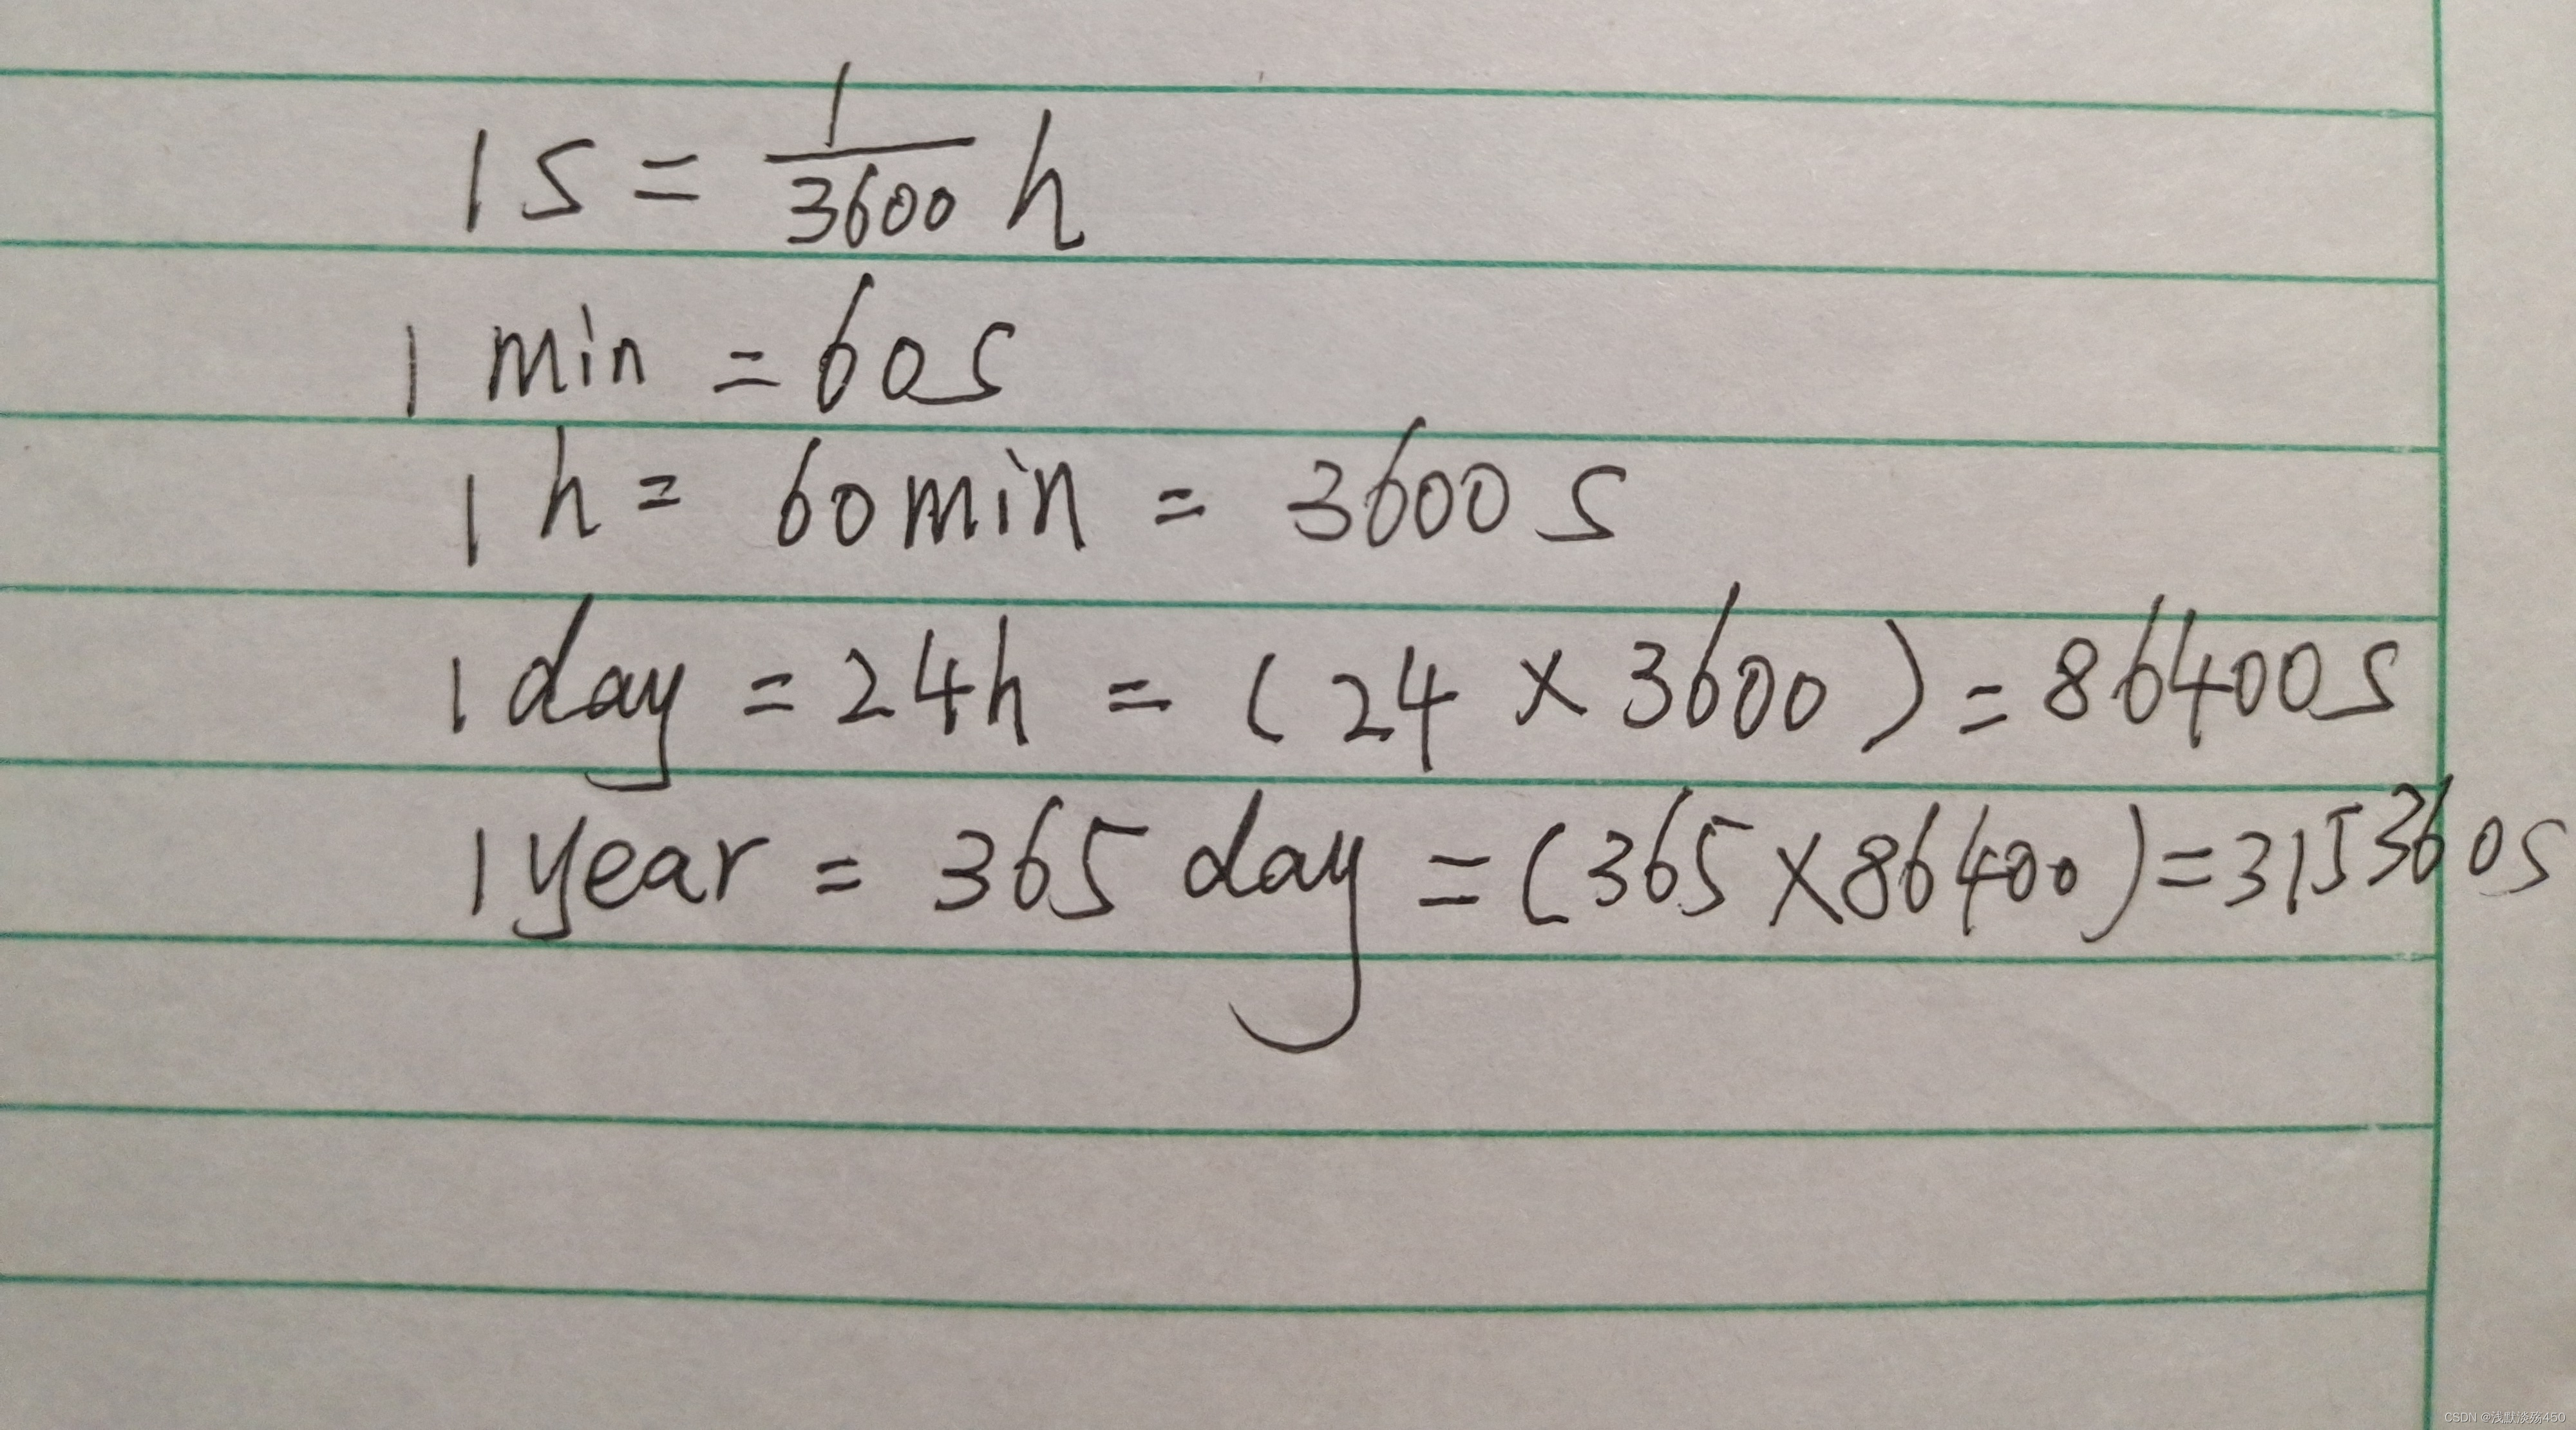 1 s = 1/3600 h
1 min = 60s
1 h = 60min = 3600 s
1 day = 24h = (24 × 3600) = 86400s
1 year = 365 day = (365 × 86400) = 315360s
CSDN @浅默淡殇450